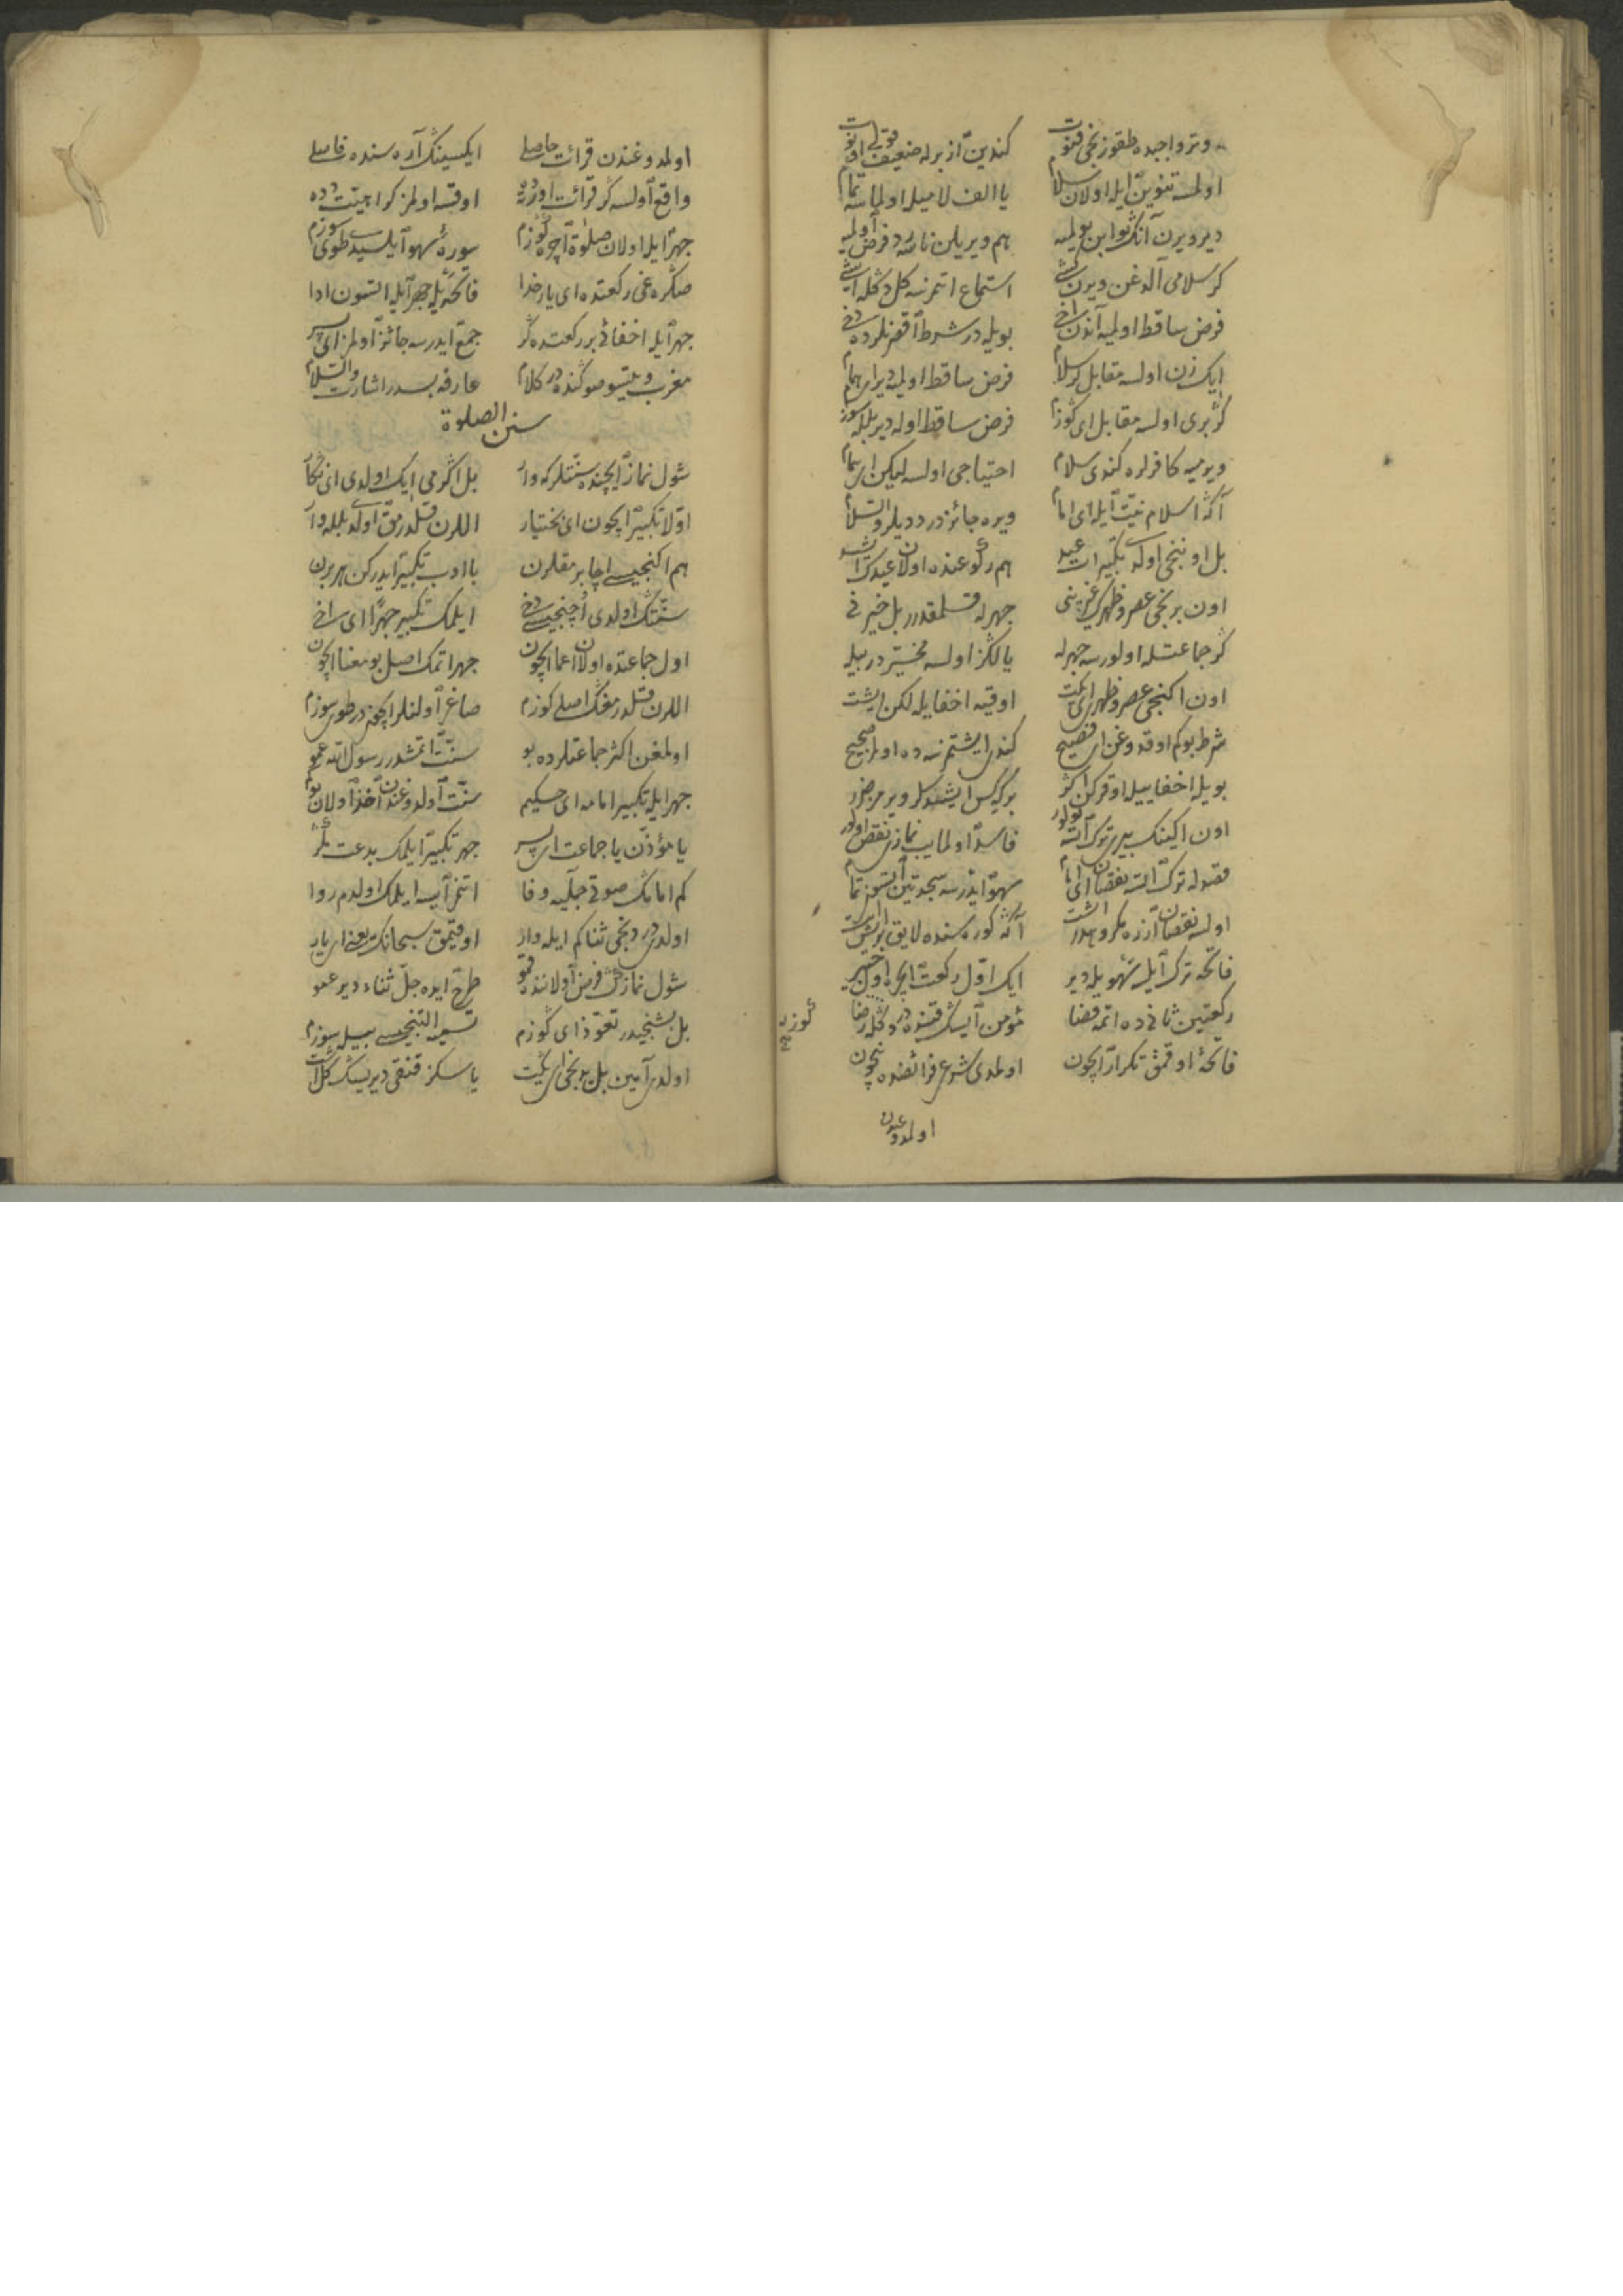 وتر واجبده طقوزنجی قنوت کندین آز برله ضعیف
اولسه تنوین ایله اولان سلام یا الف لامیله اولماسه تمام
دیر ویرن آنک ثوابن بولمیه هم ویریلن نامه فرض اولمیه
کر سلامی آلدغن ویرن کشی استماع اتمزسه کل دکله ایشی
فرض ساقط اولمیه آندن اخی بویله در شرط دخی
ایک زن اولسه مقابل کر سلام فرض ساقط اولمیه دیر ای همام
کر بری اولسه مقابل ای کوزم فرض ساقط اوله دیر بلکه سوزم
ویرمیه کافرلره کندی سلام احتیاجی اولسه لیکن ای همام
آکه اسلام نیت ایله ای امام ویره جائزدر ددیلر والسلام
بل اوننجی اولدی تکبیرات عید هم رکوعنده اولان
اون برنجی عصر وظهرک غیرینی جهرله قلمقدر بل خیرنی
کر جماعتله اولورسه جهرله یالکز اولسه مخیردر بیله
اون اکنجی عصر وظهری ای یکت اوقیه اخفایله لکن ایشت
شرط بو کم اوقدوغن ای فصیح کندی ایشتمزسه ده اولمز صحیح
بویله اخفاییله اوقرکن اکر برکس ایشتدکلری ویرمز ضرر
اون اکینک بیرین ترک اتسه فاسد اولمایب نمازی نقص اولور
قصدله ترک اتسه نقصان ای امام سهو ایدرسه سجدتین اتسون تمام
اولسه نقصان آزده مکروهدر اکه کوره سنده لایق
فاتحه ترک ایله سهویله دیر ایک اول رکعت ایچره اول خبیر
رکعتین ثانیده اتمه قضا مؤمن ایسک قتنده دکلدر رضا
فاتحه اوقمق تکرار ایچون اولمدی مشروع فرائضنده نچون
کوزدر
اولدوغندن
اولمدوغندن قرائت حاصلی ایکسینک آره سنده فاصلی
واقع اولسه کر قرائت اوزره اوقسه اولمز کراهیت ده
جهر ایله اولان صلوة اچره کوزم سوره سهو ایلسه طوی سوزم
صکره غی رکعتده ای یار خدا فاتحه یله جهر ایله اتسون ادا
جهر ایله اخفائی بر رکعتده کر جمع ایدرسه جائز اولمز ای پسر
مغرب ویتسو صوکنده در کلام عارفه بسدر اشارت والسلام
سنن الصلوة
شول نماز ایچنده سنتلرکه وار بل اکرمی ایک اولدی ای نکار
اولا تکبیر ایچون ای بختیار اللرن قلدرمق اولدی بلله وار
هم اکنجیسی اچا برمقلرن با ادب تکبیر ایدرکن هر برن
سنتک اولدی اچنجیسی دخی ایلمک تکبیر جهرا ای سخی
اول جماعتده اولان اعما ایچون جهر اتمک اصل بو معنا ایچون
اللرن قلدرمغک اصلی کوزم صاغر اولنلر ایچوندر طوی سوزم
اولمغن اکثر جماعتلرده بو سنت اتمشدر رسول الله عمو
جهر ایله تکبیر امامه ای حکیم سنت اولدوغندن آخذ اولان
یا مؤذن یا جماعت ای پسر جهر تکبیر ایلمک بدعت
کم امامک صوتی جمله یه وفا اتمز ایسه ایلمک اولدم روا
اولدی دردنجی ثنا کم ایله وار اوقیمق سبحانک یعنی ای یار
شول نمازک فرض اولاننده طرح ایده جل ثناء دیر عمو
بل بشنجیدر تعوذ ای کوزم تسمیه التنجیسی بیله سوزم
اولدی آمین بل یدنجی ای یکت یا سکز قنقی دیریسک کل اشت